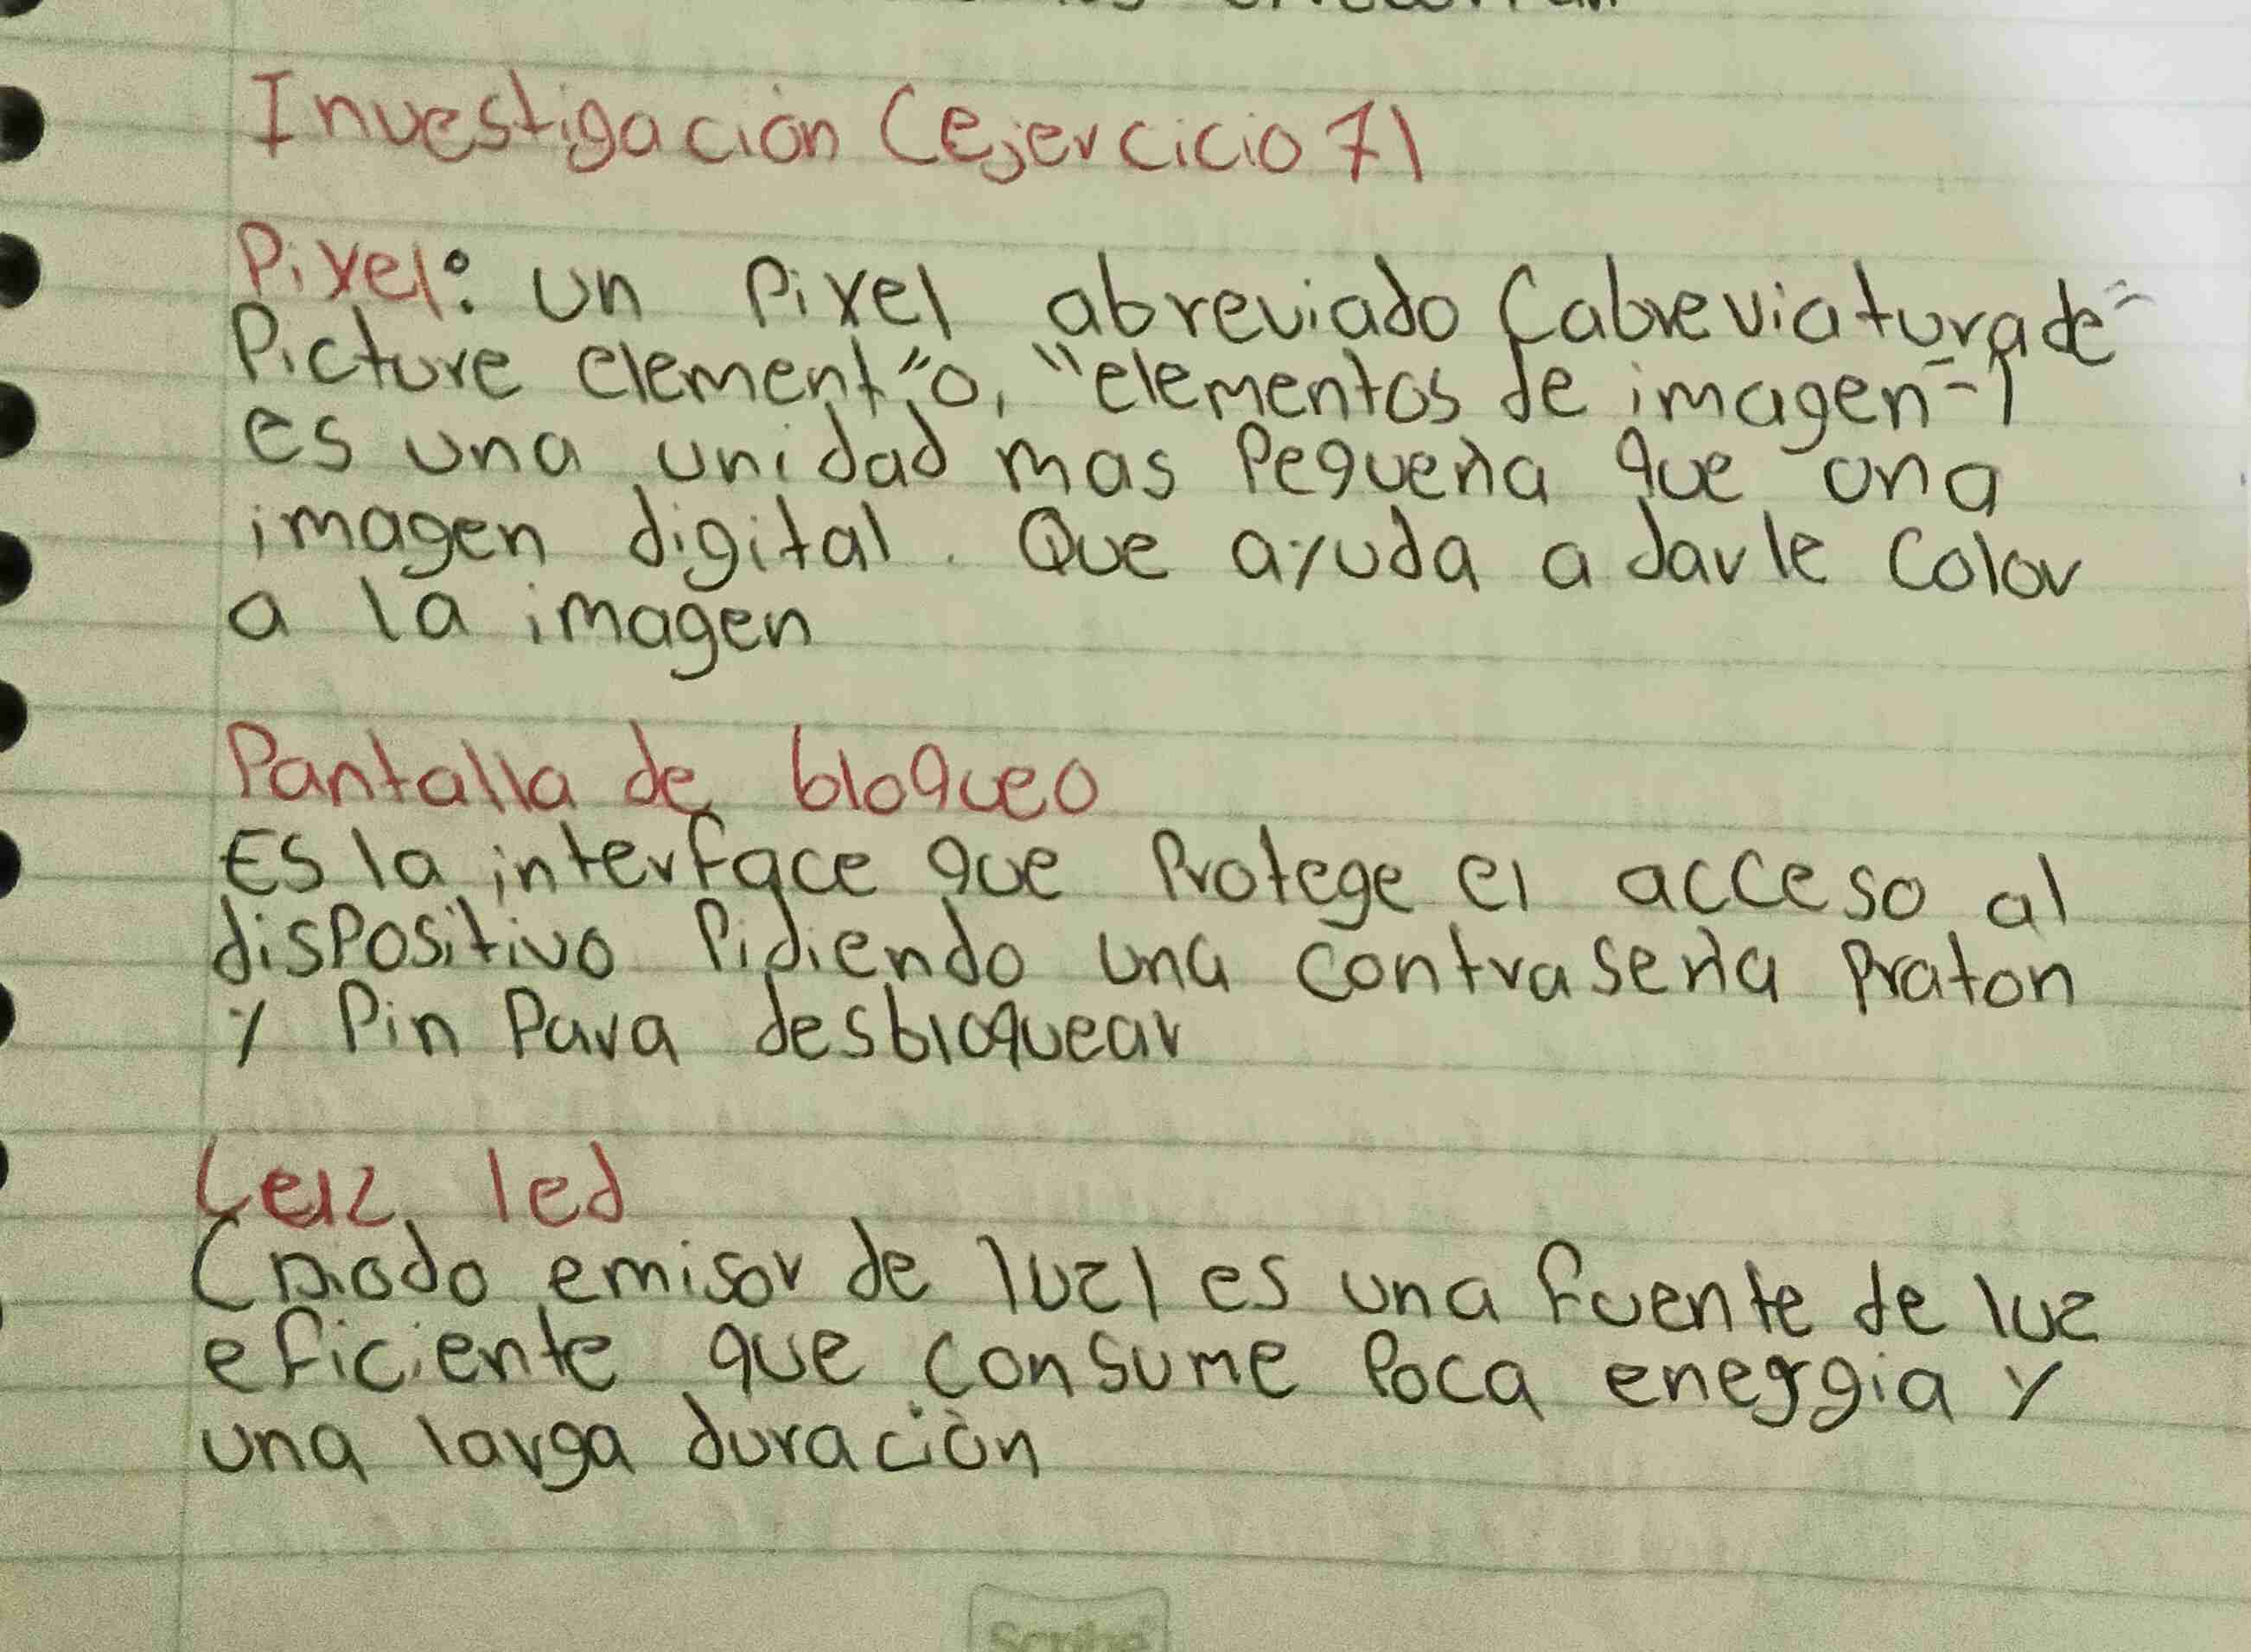 Investigación (Ejercicio 7)
Pixel: un Pixel abreviado (abreviatura de "
Picture element" o, "elementos de imagen")
es una unidad mas Pequeña que una
imagen digital. Que ayuda a darle Color
a la imagen
Pantalla de bloqueo
Es la interface que Protege el acceso al
disPositivo Pidiendo una contraseña Praton
y Pin Para desbloquear
led
(Diodo emisor de luz) es una fuente de luz
eficiente que consume Poca energgia y
una larga duración
Scribe